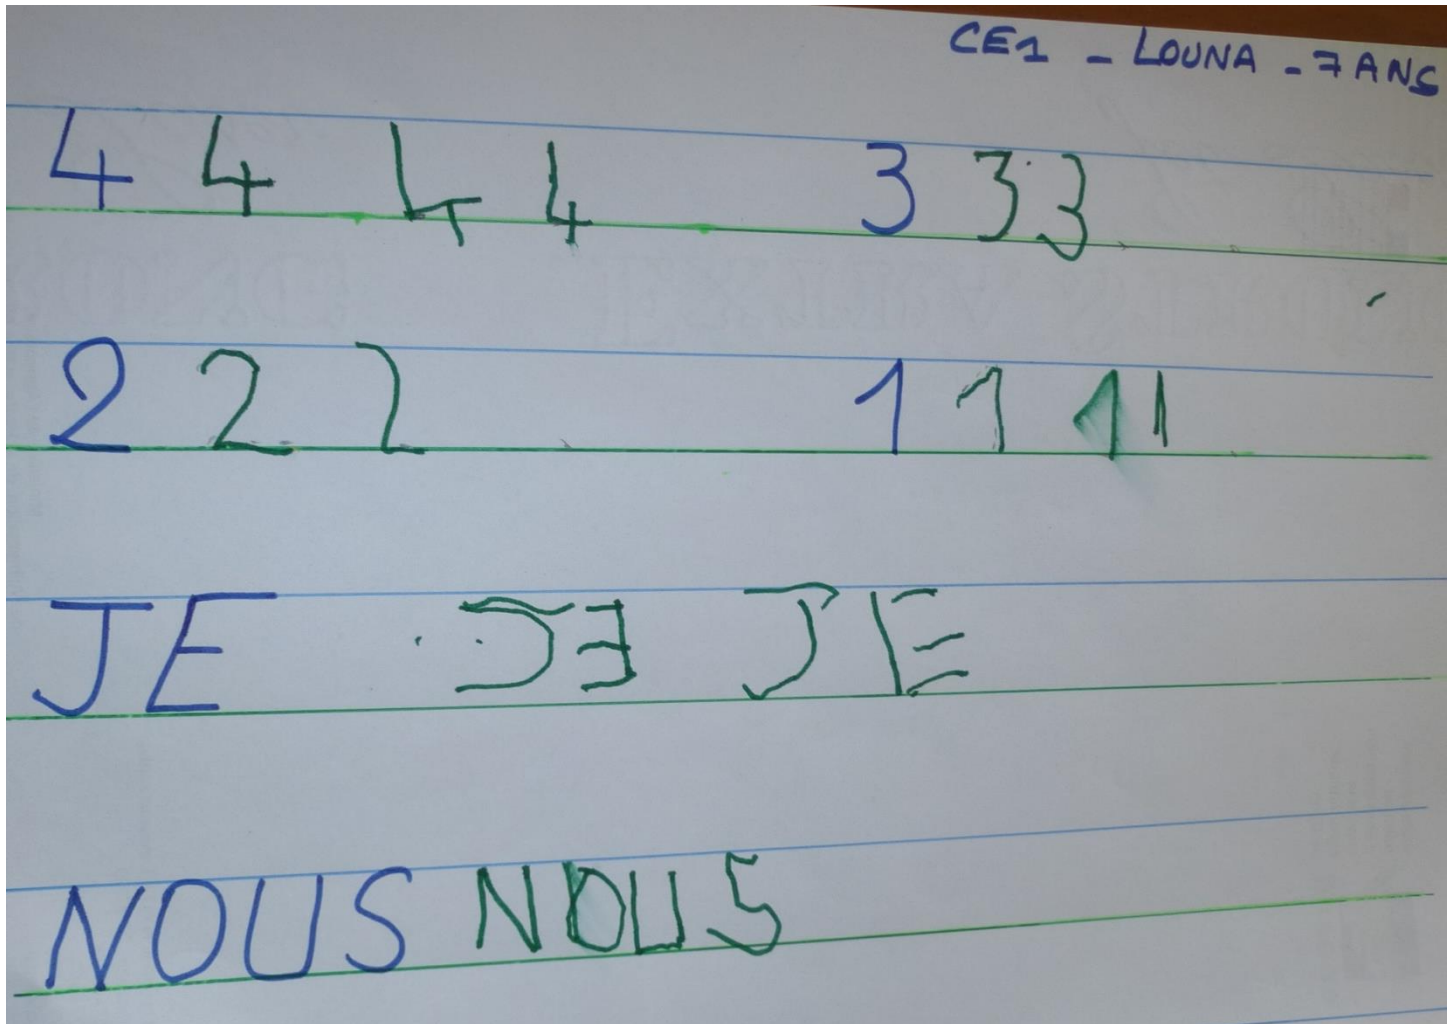 CE1 - LOUNA - 7 ANS
4 4 4 4 3 3 3
2 2 2 1 1 1 1
JE JE JE
NOUS NOUS